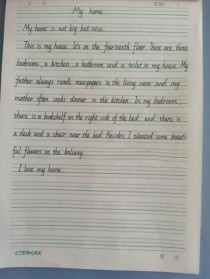 My home
My home is not big but nice.
This is my house. It's on the fourteenth floor. There are three
bedrooms, a kitchen, a bathroom and a toilet in my house. My
father always reads newspapers in the living room and my
mother often cooks dinner in the kitchen. In my bedroom,
there is a bookshelf on the right side of the bed and there is
a desk and a chair near the bed. Besides, I planted some beauti-
ful flowers on the balcony.
I love my home.